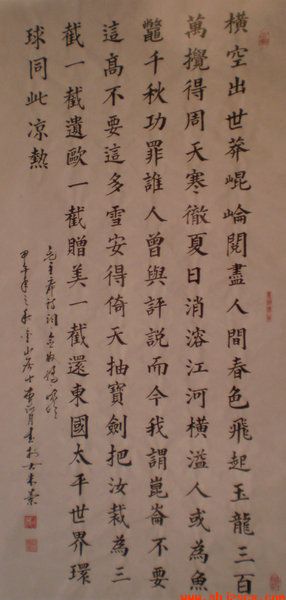 橫空出世莽崐崘閱盡人間春色飛起玉龍三百
萬攪得周天寒徹夏日消溶江河橫溢人或為魚
鼈千秋功罪誰人曾與評説而今我謂崑崙不要
這高不要這多雪安得倚天抽寶劍把汝裁為三
截一截遺歐一截贈美一截還東國太平世界環
球同此凉熱
毛主席詩詞念奴嬌
甲午年之秋金山居士